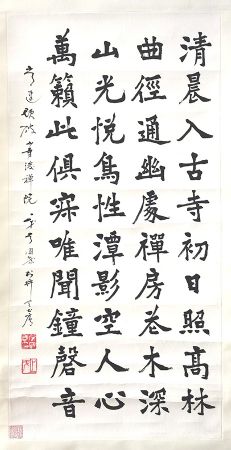 清晨入古寺初日照高林
曲徑通幽處禪房花木深
山光悅鳥性潭影空人心
萬籟此俱寂唯聞鐘磬音
常建題破山寺後禪院